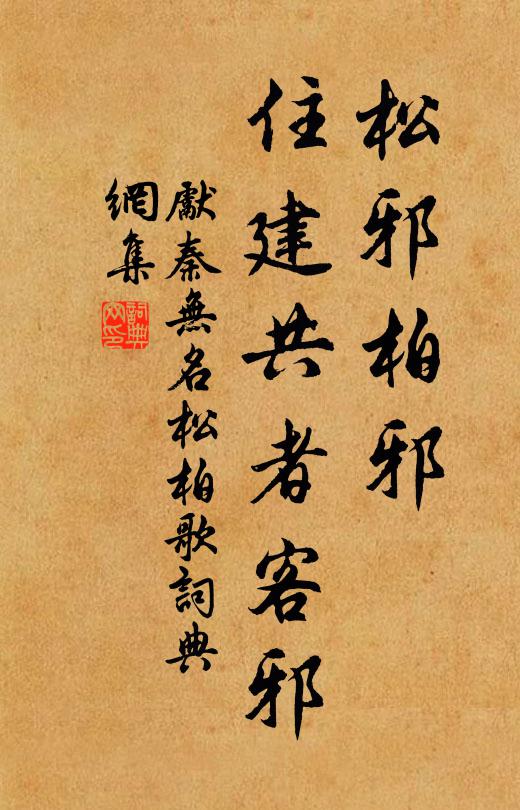 松邪柏邪
住建共者客邪
獻秦無名松柏歌詞典
網集
詞典
文印